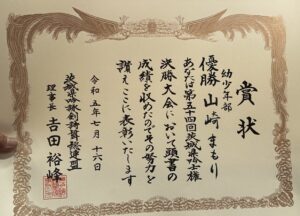 賞状
幼少年部
優勝 山崎 まもり
あなたは第五十四回茨城県吟士権
決勝大会において頭書の
成績を収めたのでその努力を
讃えここに表彰いたします
令和五年七月十六日
茨城県吟詠剣詩舞総連盟
理事長 吉田裕峰